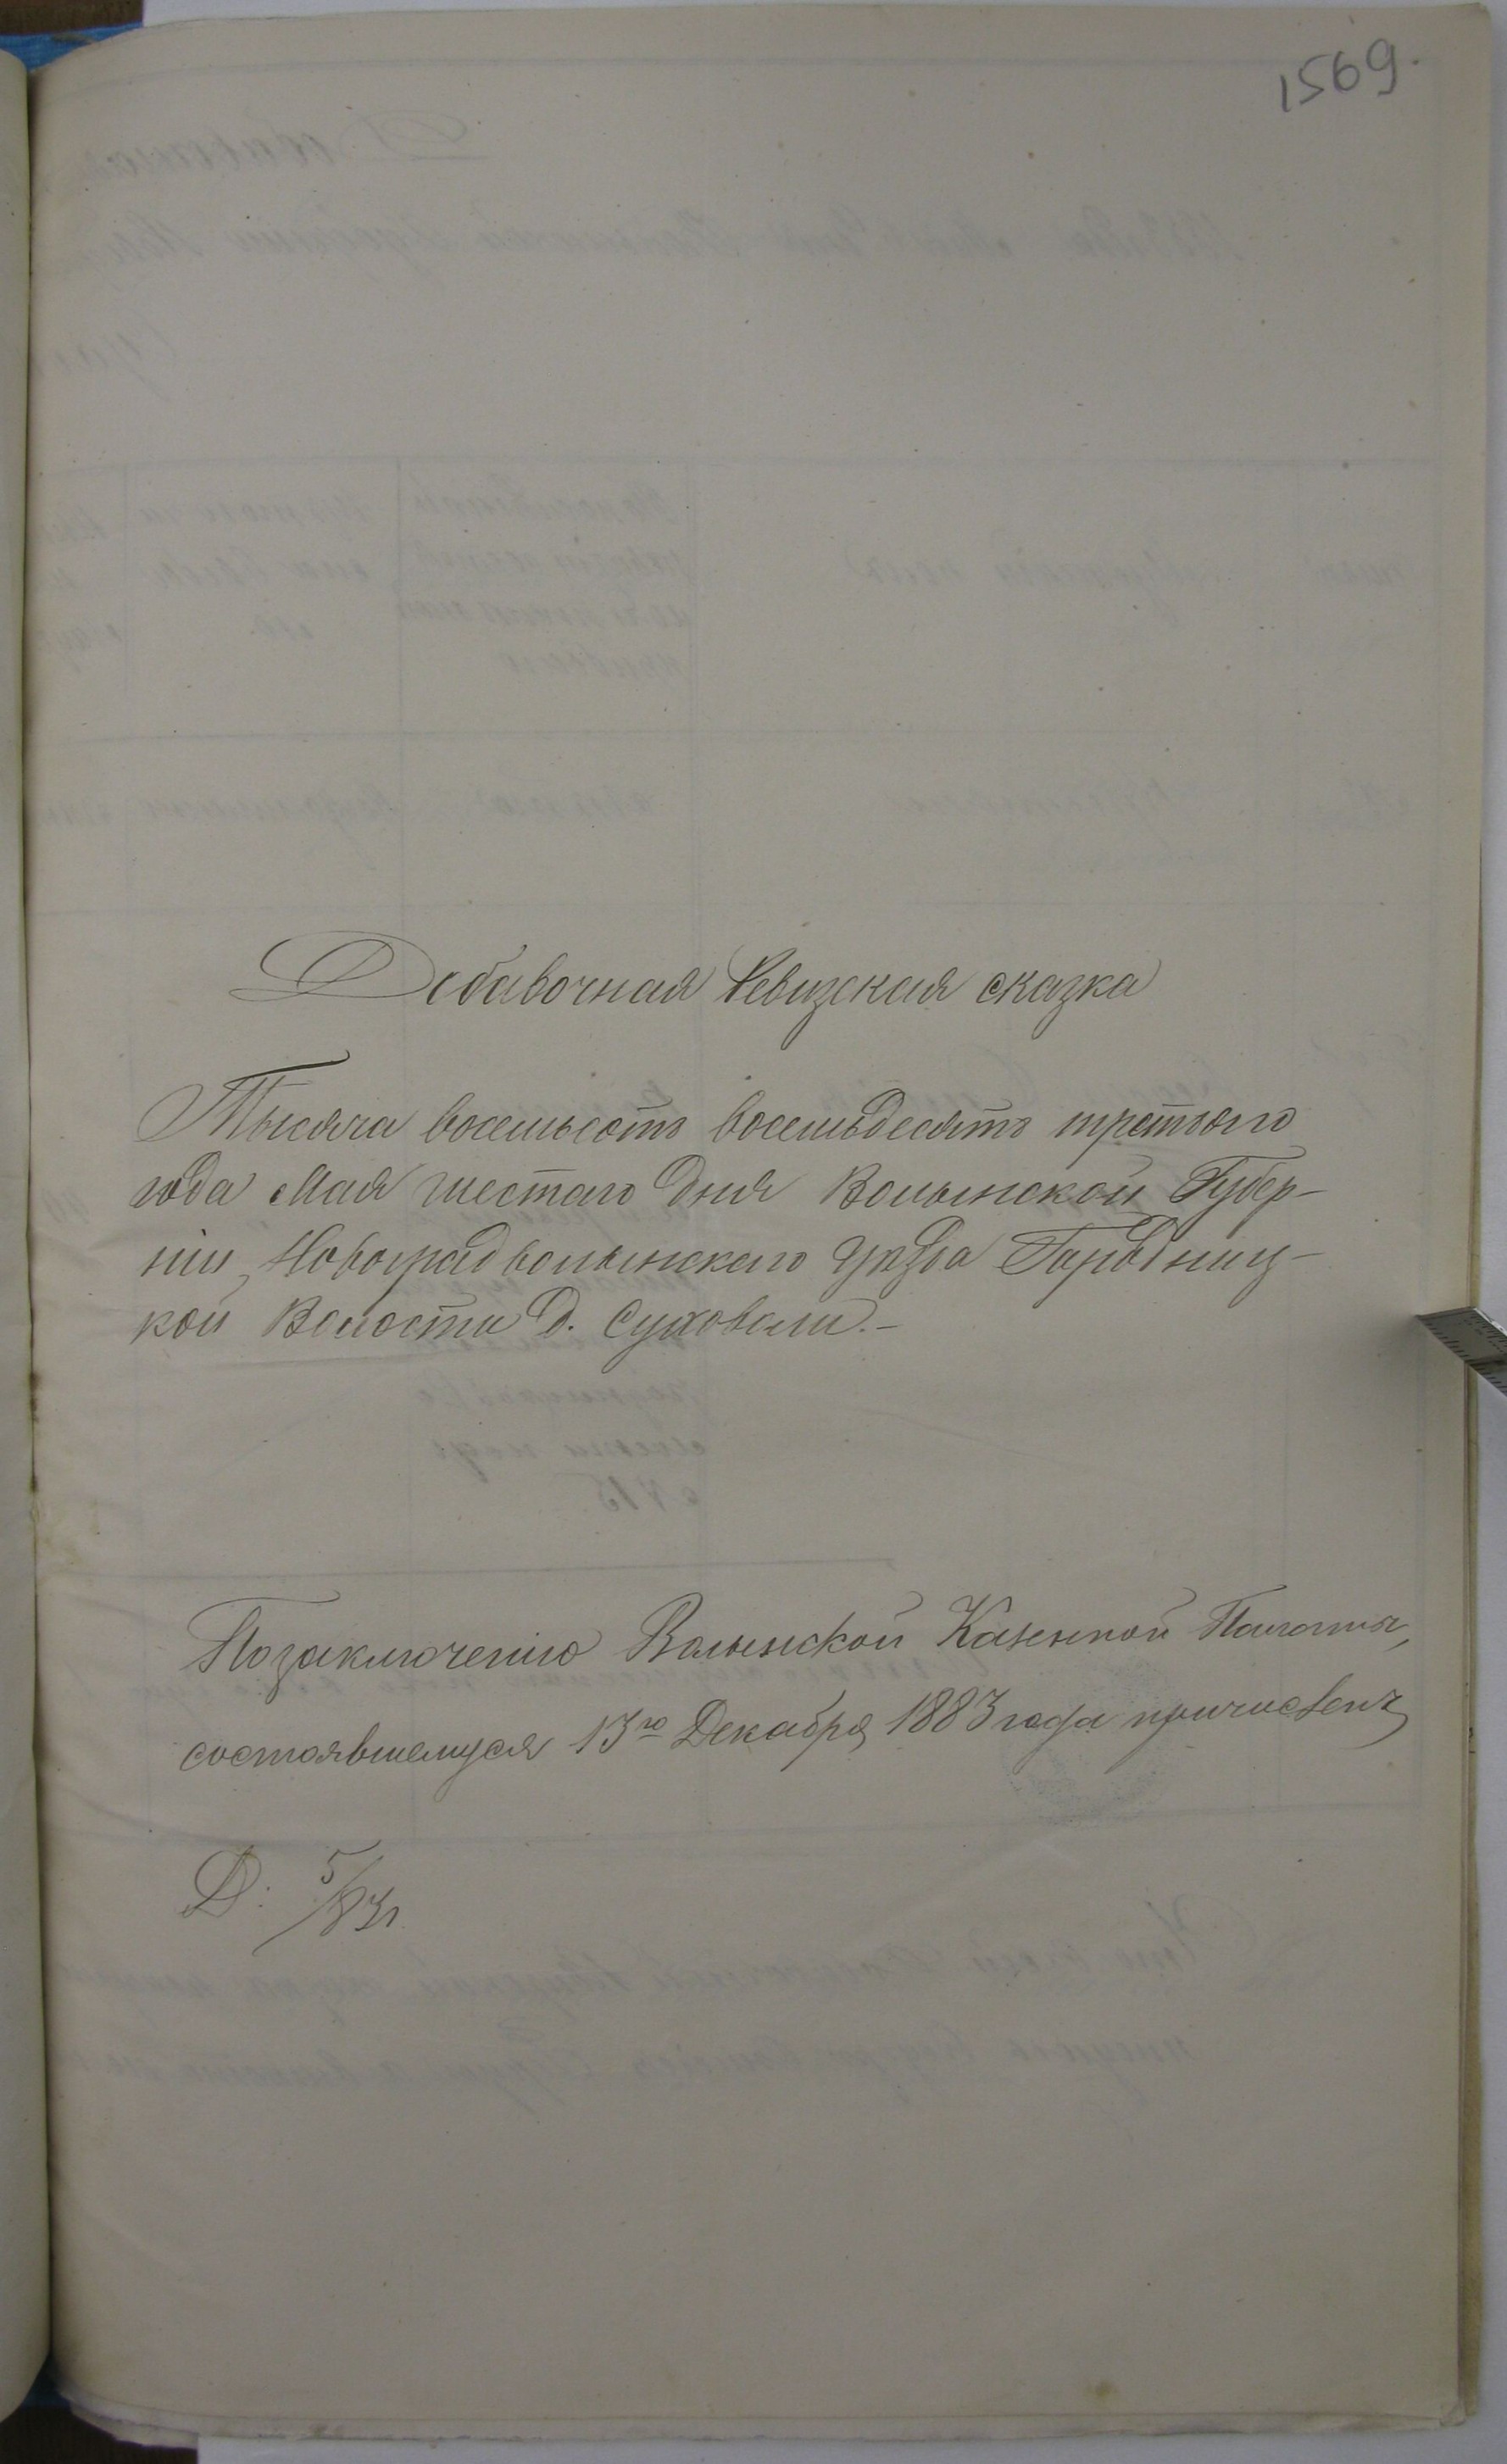 1569.
Добавочная Ревизская сказка
Тысяча восемьсотъ восемьдесятъ третьяго
года Мая шестаго дня Волынской Губер-
нии, Новоградволынскаго Уѣзда Городниц-
кой Волости д. Суховоли.-
По заключенію Волынской Казенной Палаты,
состоявшемуся 13го Декабря 1883 года причисленъ
Д: 5/83г.